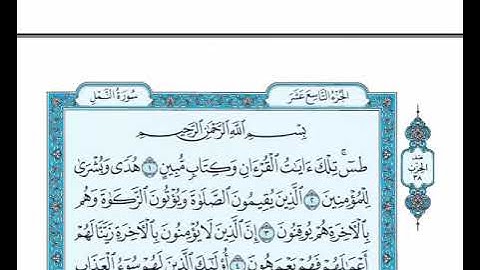 الجزء التاسع عشر
سورة النمل
بِسْمِ ٱللَّهِ ٱلرَّحْمَٰنِ ٱلرَّحِيمِ
طسٓ ۚ تِلْكَ ءَايَٰتُ ٱلْقُرْءَانِ وَكِتَابٍ مُّبِينٍ ١ هُدًى وَبُشْرَىٰ
لِلْمُؤْمِنِينَ ٢ ٱلَّذِينَ يُقِيمُونَ ٱلصَّلَوٰةَ وَيُؤْتُونَ ٱلزَّكَوٰةَ وَهُم
بِٱلْءَاخِرَةِ هُمْ يُوقِنُونَ ٣ إِنَّ ٱلَّذِينَ لَا يُؤْمِنُونَ بِٱلْءَاخِرَةِ زَيَّنَّا لَهُمْ
أَعْمَٰلَهُمْ فَهُمْ يَعْمَهُونَ ٤ أُو۟لَٰٓئِكَ ٱلَّذِينَ لَهُمْ سُوٓءُ ٱلْعَذَابِ
الحزب
٣٨